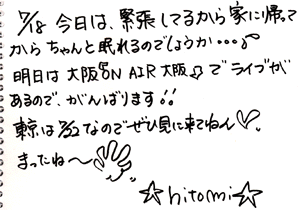 7/18 今日は、緊張してるから家に帰って
からちゃんと眠れるのでしょうか…♪
明日は大阪『ON AIR 大阪』でライブが
あるので、がんばります!!
東京は7/22なのでぜひ見に来てねん♡。
まったね〜
☆hitomi☆